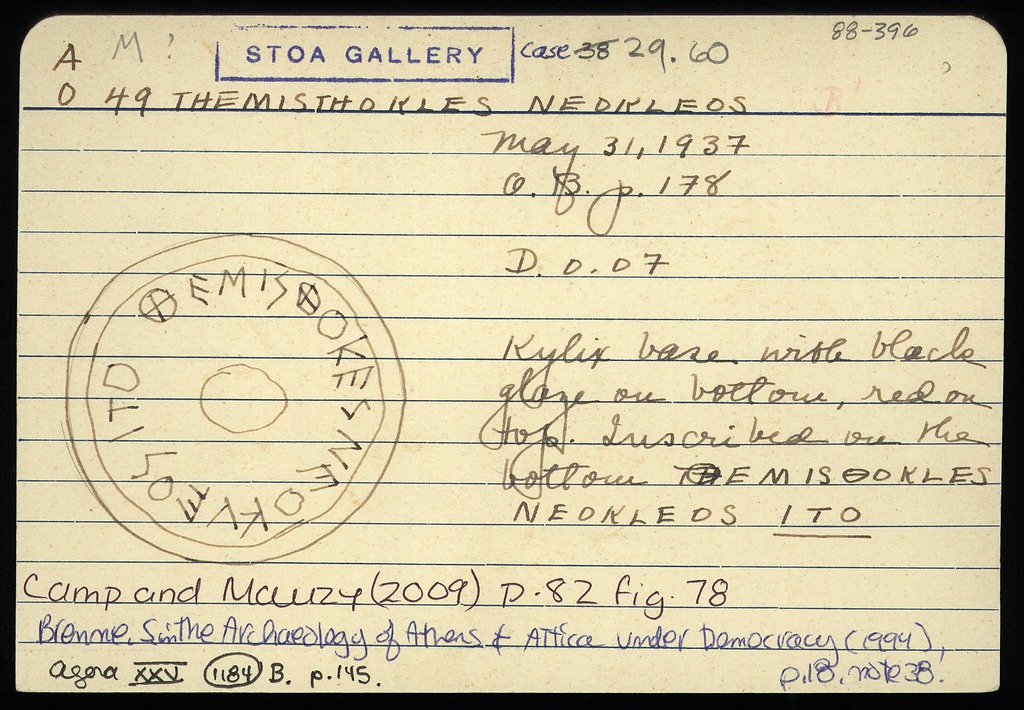 A M? STOA GALLERY Case 38 29.60 88-396
O 49 THEMISTHOKLES NEOKLEOS
May 31, 1937
O.B. p. 178
D. 0.07
ⴲEMISⴲOKLES NEOKLEOS ITO
Kylix base with black
glaze on bottom, red on
top. Inscribed on the
bottom ΘEMISΘOKLES
NEOKLEOS ITO
Camp and Mauzy (2009) p.82 fig. 78
Brenne, S. in The Archaeology of Athens & Attica under Democracy (1994),
p.18, note 38.
Agora XXV 1184 B. p.145.